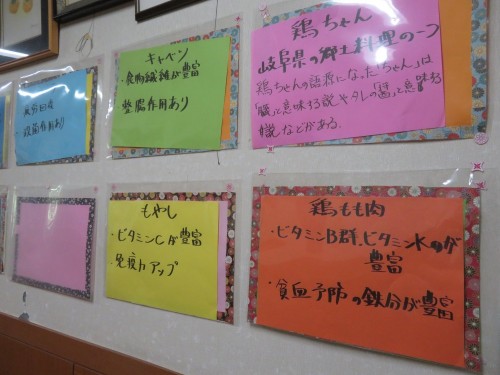 疲労回復
・殺菌作用あり
キャベツ
・食物繊維が豊富
整腸作用あり
鶏ちゃん
岐阜県の郷土料理の一つ
鶏ちゃんの語源になった「ちゃん」は
意味する説やタレの「醤」を意味する
説などがある。
もやし
・ビタミンCが豊富
・免疫力アップ
鶏もも肉
・ビタミンB群、ビタミンKが
豊富
・貧血予防の鉄分が豊富